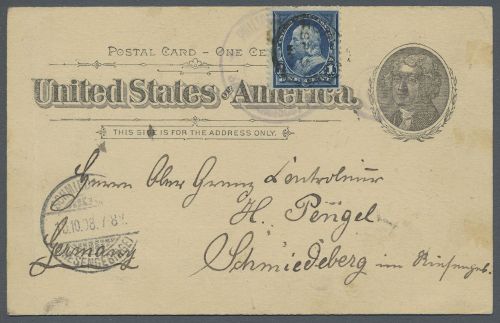 POSTAL CARD – ONE CE
United States of America.
THIS SIDE IS FOR THE ADDRESS ONLY.
ONE CENT
Herrn Ober Grenz Controleur
H. Pengel
Schmiedeberg im Riesengeb.
Germany
10.98. 7-8
RIESENGEB